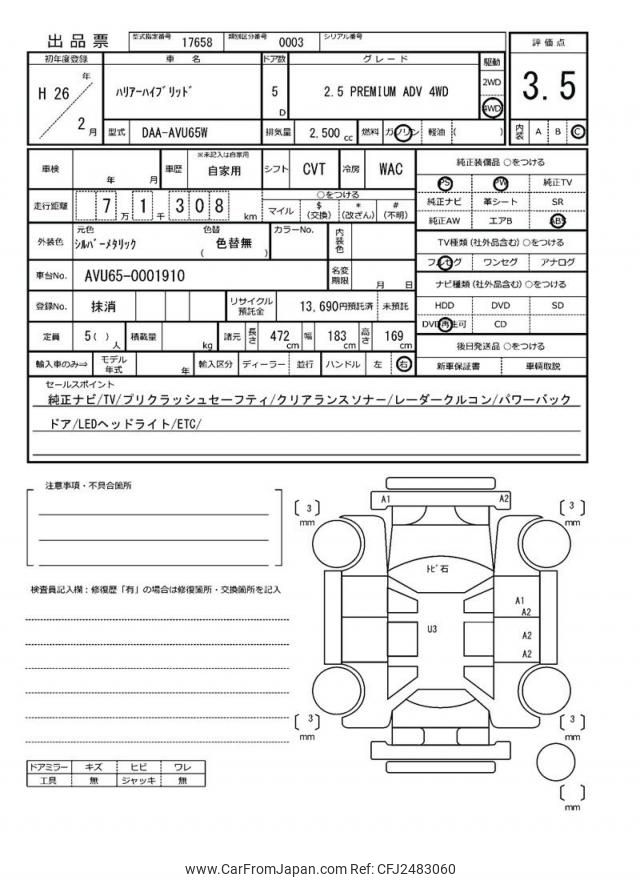 出品票 型式指定番号 17658 類別区分番号 0003 シリアル番号
初年度登録 車 名 ドア数 グレード 駆動 評価点
H 26 年 2 月 ハリアーハイブリッド 5 D 2.5 PREMIUM ADV 4WD 2WD 4WD 3.5
型式 DAA-AVU65W 排気量 2.500 cc 燃料 ガソリン 軽油 ( ) 内装 A B C
車検 年 月 車歴 ※未記入は自家用 自家用 シフト CVT 冷房 WAC
走行距離 7 万 1 千 3 0 8 km ○をつける マイル $ (交換) * (改ざん) # (不明)
外装色 元色 シルバーメタリック 色替 ( 色替無 ) カラーNo. 内装色
車台No. AVU65-0001910 名変期限 月 日
登録No. 抹消 リサイクル預託金 13,690円預託済 未預託
定員 5( ) 人 積載量 kg 諸元 長さ 472 cm 幅 183 cm 高さ 169 cm
輸入車のみ⇒ モデル年式 年 輸入区分 ディーラー 並行 ハンドル 左 右
純正装備品 ○をつける
PS PW 純正TV
純正ナビ 革シート SR
純正AW エアB ABS
TV種類 (社外品含む) ○をつける
フルセグ ワンセグ アナログ
ナビ種類 (社外品含む) ○をつける
HDD DVD SD
DVD再生可 CD
後日発送品 ○をつける
新車保証書 車輌取説
セールスポイント
純正ナビ/TV/プリクラッシュセーフティ/クリアランスソナー/レーダークルコン/パワーバック
ドア/LEDヘッドライト/ETC/
注意事項・不具合箇所
検査員記入欄：修復歴「有」の場合は修復箇所・交換箇所を記入
ドアミラー キズ ヒビ ワレ
工具 無 ジャッキ 無
A1 A2
3 mm 3 mm
トビ石
A1
A2
U3 A2
A2
3 mm 3 mm
mm
www.CarFromJapan.com Ref: CFJ2483060